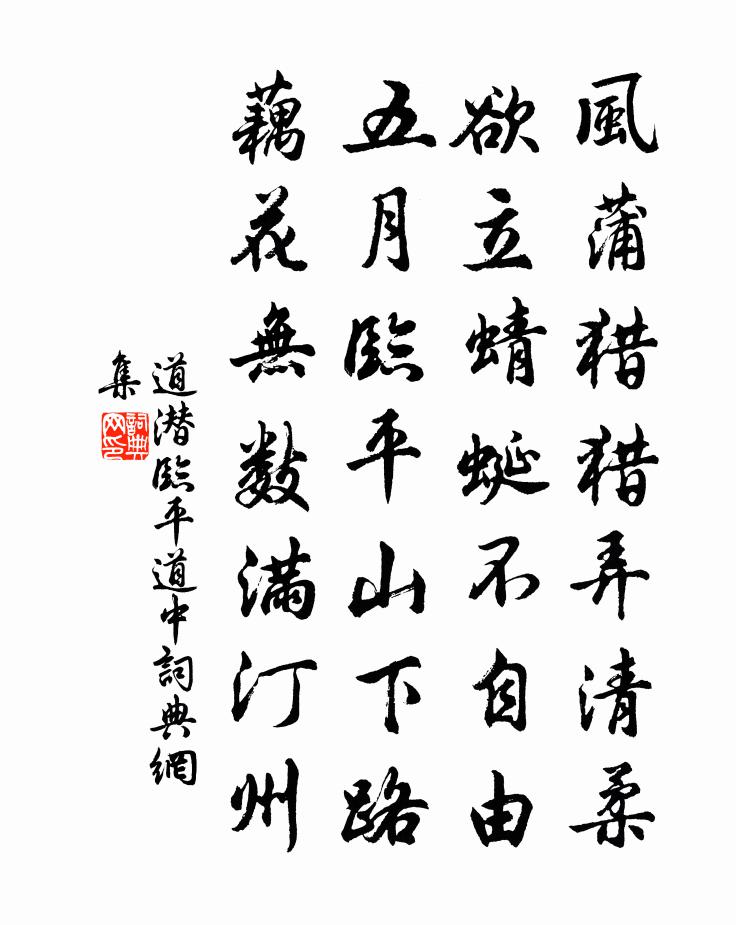 風蒲猎猎弄清柔
欲立蜻蜓不自由
五月臨平山下路
藕花無數滿汀州
道潜臨平道中詞典網
集
詞典網印